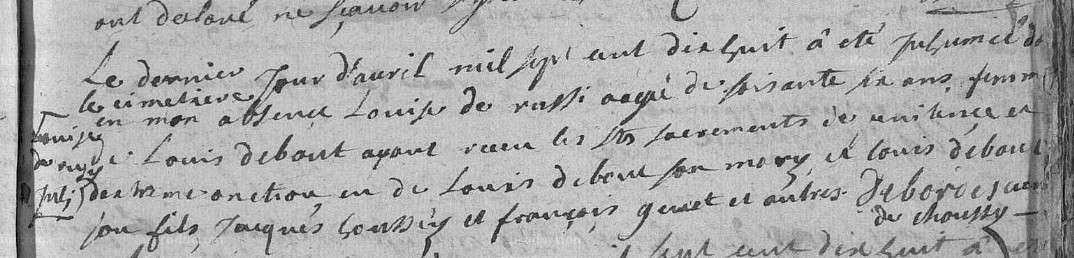 ont declaré ne sçavoir
Le dernier jour d'avril mil sept cent dix huit a eté inhumée da
le cimetiere
en mon absence Louise de russi aagé de soisante six ans femm
Louise
de russy
de Louis debout ayant receu les sts sacrements de penitence et
dextreme onction en de Louis debout son mary et louis debout
son fils Jacques et françois genet et autres Debordes curé
de choussy
sept cent dix huit a